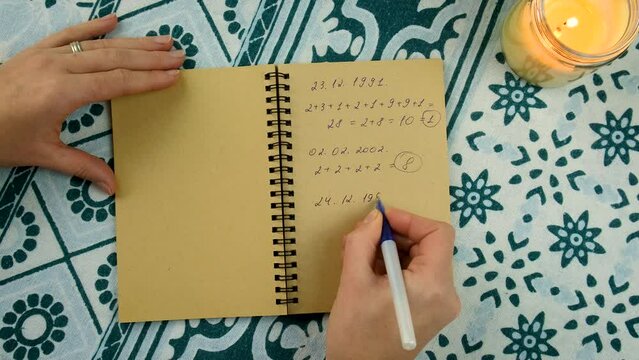 23.12.1991.
2+3+1+2+1+9+9+1=
28=2+8=10=1
02.02.2002.
2+2+2+2=8
24.12.19